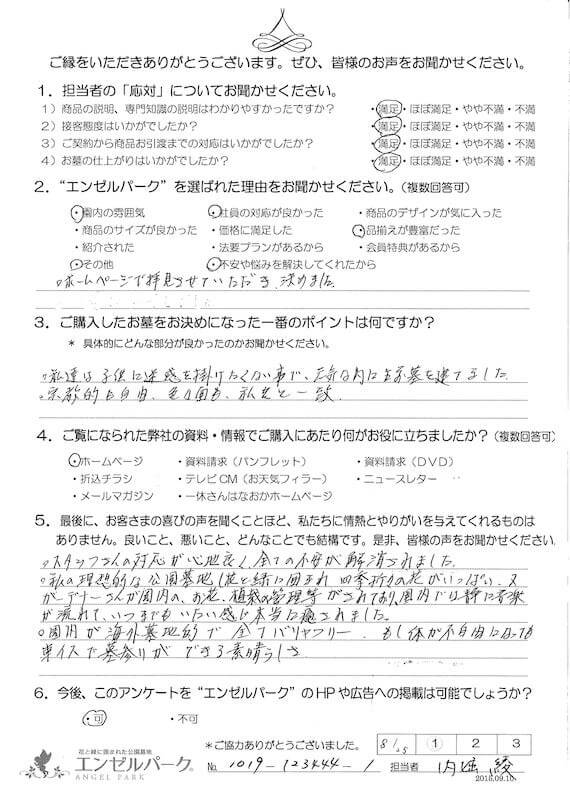 ご縁をいただきありがとうございます。ぜひ、皆様のお声をお聞かせください。
1．担当者の「応対」についてお聞かせください。
1）商品の説明、専門知識の説明はわかりやすかったですか？ ・満足・ほぼ満足・やや不満・不満
2）接客態度はいかがでしたか？ ・満足・ほぼ満足・やや不満・不満
3）ご契約から商品お引渡までの対応はいかがでしたか？ ・満足・ほぼ満足・やや不満・不満
4）お墓の仕上がりはいかがでしたか？ ・満足・ほぼ満足・やや不満・不満
2．“エンゼルパーク”を選ばれた理由をお聞かせください。（複数回答可）
・園内の雰囲気 ・社員の対応が良かった ・商品のデザインが気に入った
・商品のサイズが良かった ・価格に満足した ・品揃えが豊富だった
・紹介された ・法要プランがあるから ・会員特典があるから
・その他 ・不安や悩みを解決してくれたから
○ホームページで拝見させていただき、決めました
3．ご購入したお墓をお決めになった一番のポイントは何ですか？
＊ 具体的にどんな部分が良かったのかお聞かせください。
○私達は子供に迷惑を掛けたくない事で、元気な内にお墓を建てました。
○宗教的も自由、 私共と一致
4．ご覧になられた弊社の資料・情報でご購入にあたり何がお役に立ちましたか？（複数回答可）
・ホームページ ・資料請求（パンフレット） ・資料請求（DVD）
・折込チラシ ・テレビCM（お天気フィラー） ・ニュースレター
・メールマガジン ・一休さんはなおかホームページ
5．最後に、お客さまの喜びの声を聞くことほど、私たちに情熱とやりがいを与えてくれるものは
ありません。良いこと、悪いこと、どんなことでも結構です。是非、皆様の声をお聞かせください。
○スタッフさんの対応が心地良く、全ての不安が解消されました。
○私の理想的な公園墓地（花と緑に囲まれ四季折々の花がいっぱい、又
ガーデナーさんが園内の、お花、植栽の管理等がされており、園内では静に音楽
が流れて、いつまでもいたい感じ本当に癒されました。
○園内が海外墓地的で全てバリヤフリー、もし体が不自由になっても
車イスで墓参りができる素晴らしさ
6．今後、このアンケートを“エンゼルパーク”のHPや広告への掲載は可能でしょうか？
・可 ・不可
＊ご協力ありがとうございました。 8/25 1 2 3
花と緑に囲まれた公園墓地
エンゼルパーク®
ANGEL PARK
No. 1019-123444-1 担当者 内堀 綾
2016.09.10